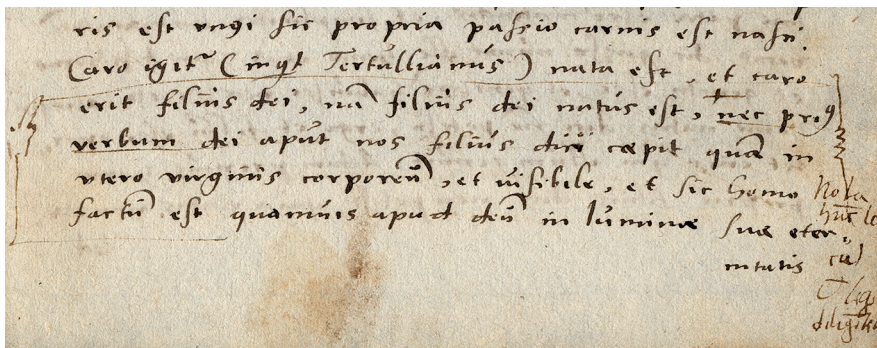 ris est ungi sic propria passio carnis est nasci.
Caro igit^r (inq̃t Tertullianus) nata est, et caro
erit filius dei, nã filius dei natus est, nec pri⁹
verbum dei aput nos filius dici cœpit quã in
utero virginis corporeũ, et visibile, et sic homo
factũ est quamvis apud deũ in lumine suæ eter-
nitatis
Nota
hũc lo
cũ
lege
diligẽte